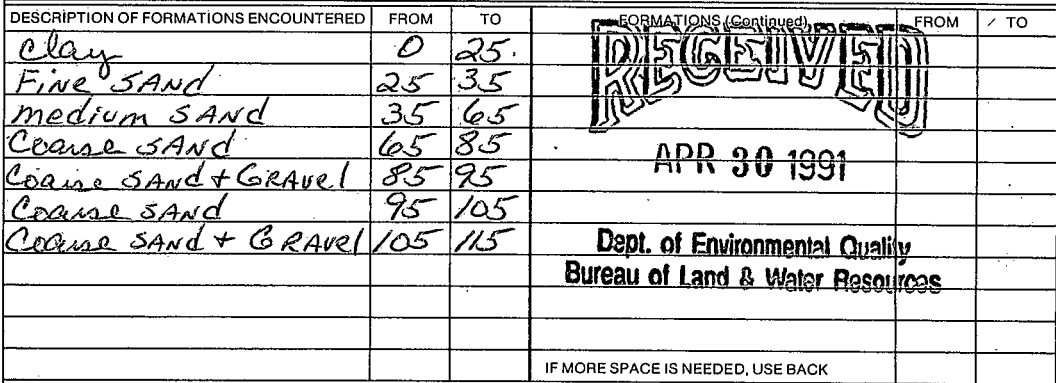 DESCRIPTION OF FORMATIONS ENCOUNTERED FROM TO FORMATIONS (Continued) FROM TO
Clay 0 25
Fine SAND 25 35
medium SAND 35 65
Coarse SAND 65 85
Coarse SAND + GRAVEl 85 95
Coarse SAND 95 105
Coarse SAND + GRAVEl 105 115
RECEIVED
APR 30 1991
Dept. of Environmental Quality
Bureau of Land & Water Resources
IF MORE SPACE IS NEEDED, USE BACK